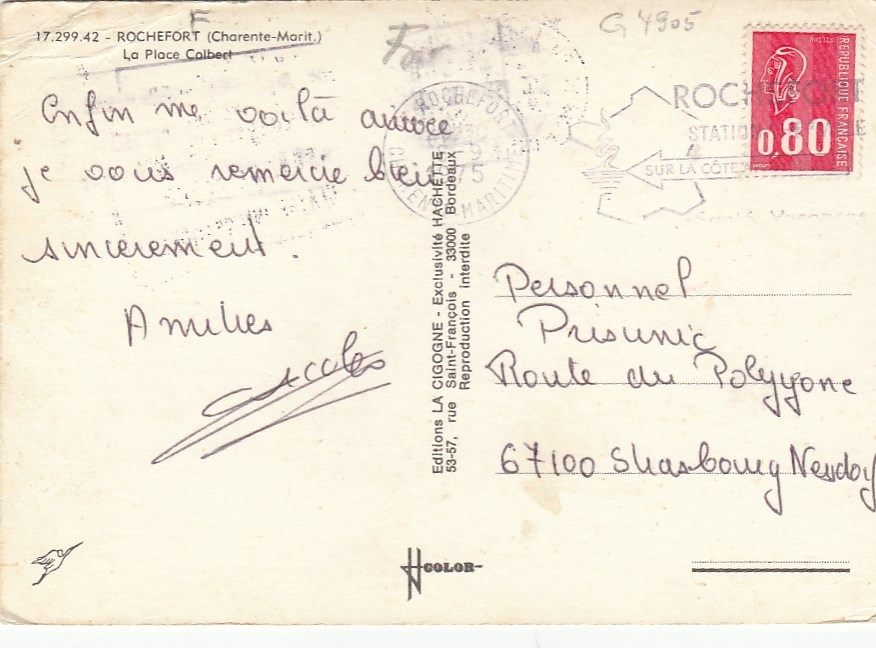 F
17.299.42 - ROCHEFORT (Charente-Marit.)
La Place Colbert
G 4905
Enfin me voilà
je vous remercie bien
sincèrement.
Amitiés
Editions LA CIGOGNE - Exclusivité HACHETTE
53-57, rue Saint-François - 33000 Bordeaux
Reproduction interdite
ROCHEFORT
75
CHARENTE MARITIME
ROCHEFORT
STATION
SUR LA CÔTE
Santé Vacances
REPUBLIQUE FRANÇAISE
0,80
Personnel
Prisunic
Route du Polygone
67100 Strasbourg Neudorf
COLOR